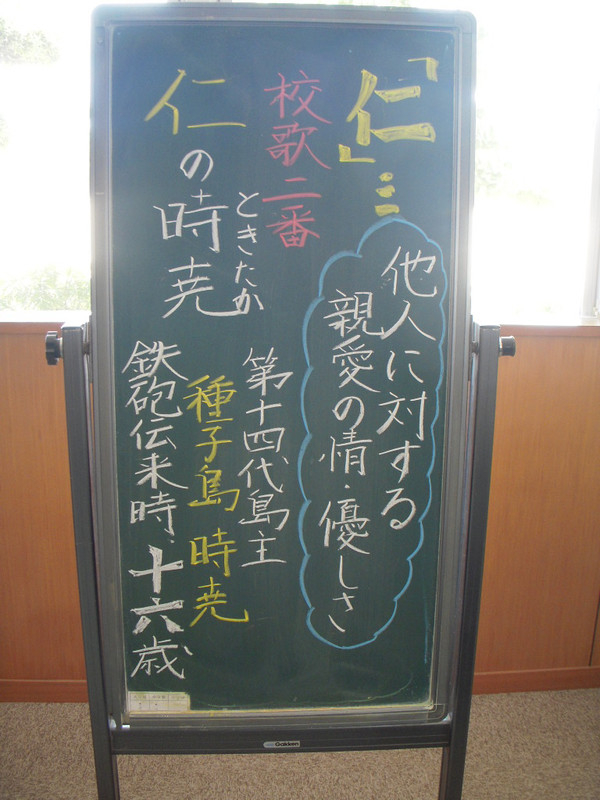 「仁」…
他人に対する
親愛の情・優しさ
校歌二番
ときたか
仁の時尭
第十四代島主
種子島 時尭
鉄砲伝来時、十六歳
Gakken